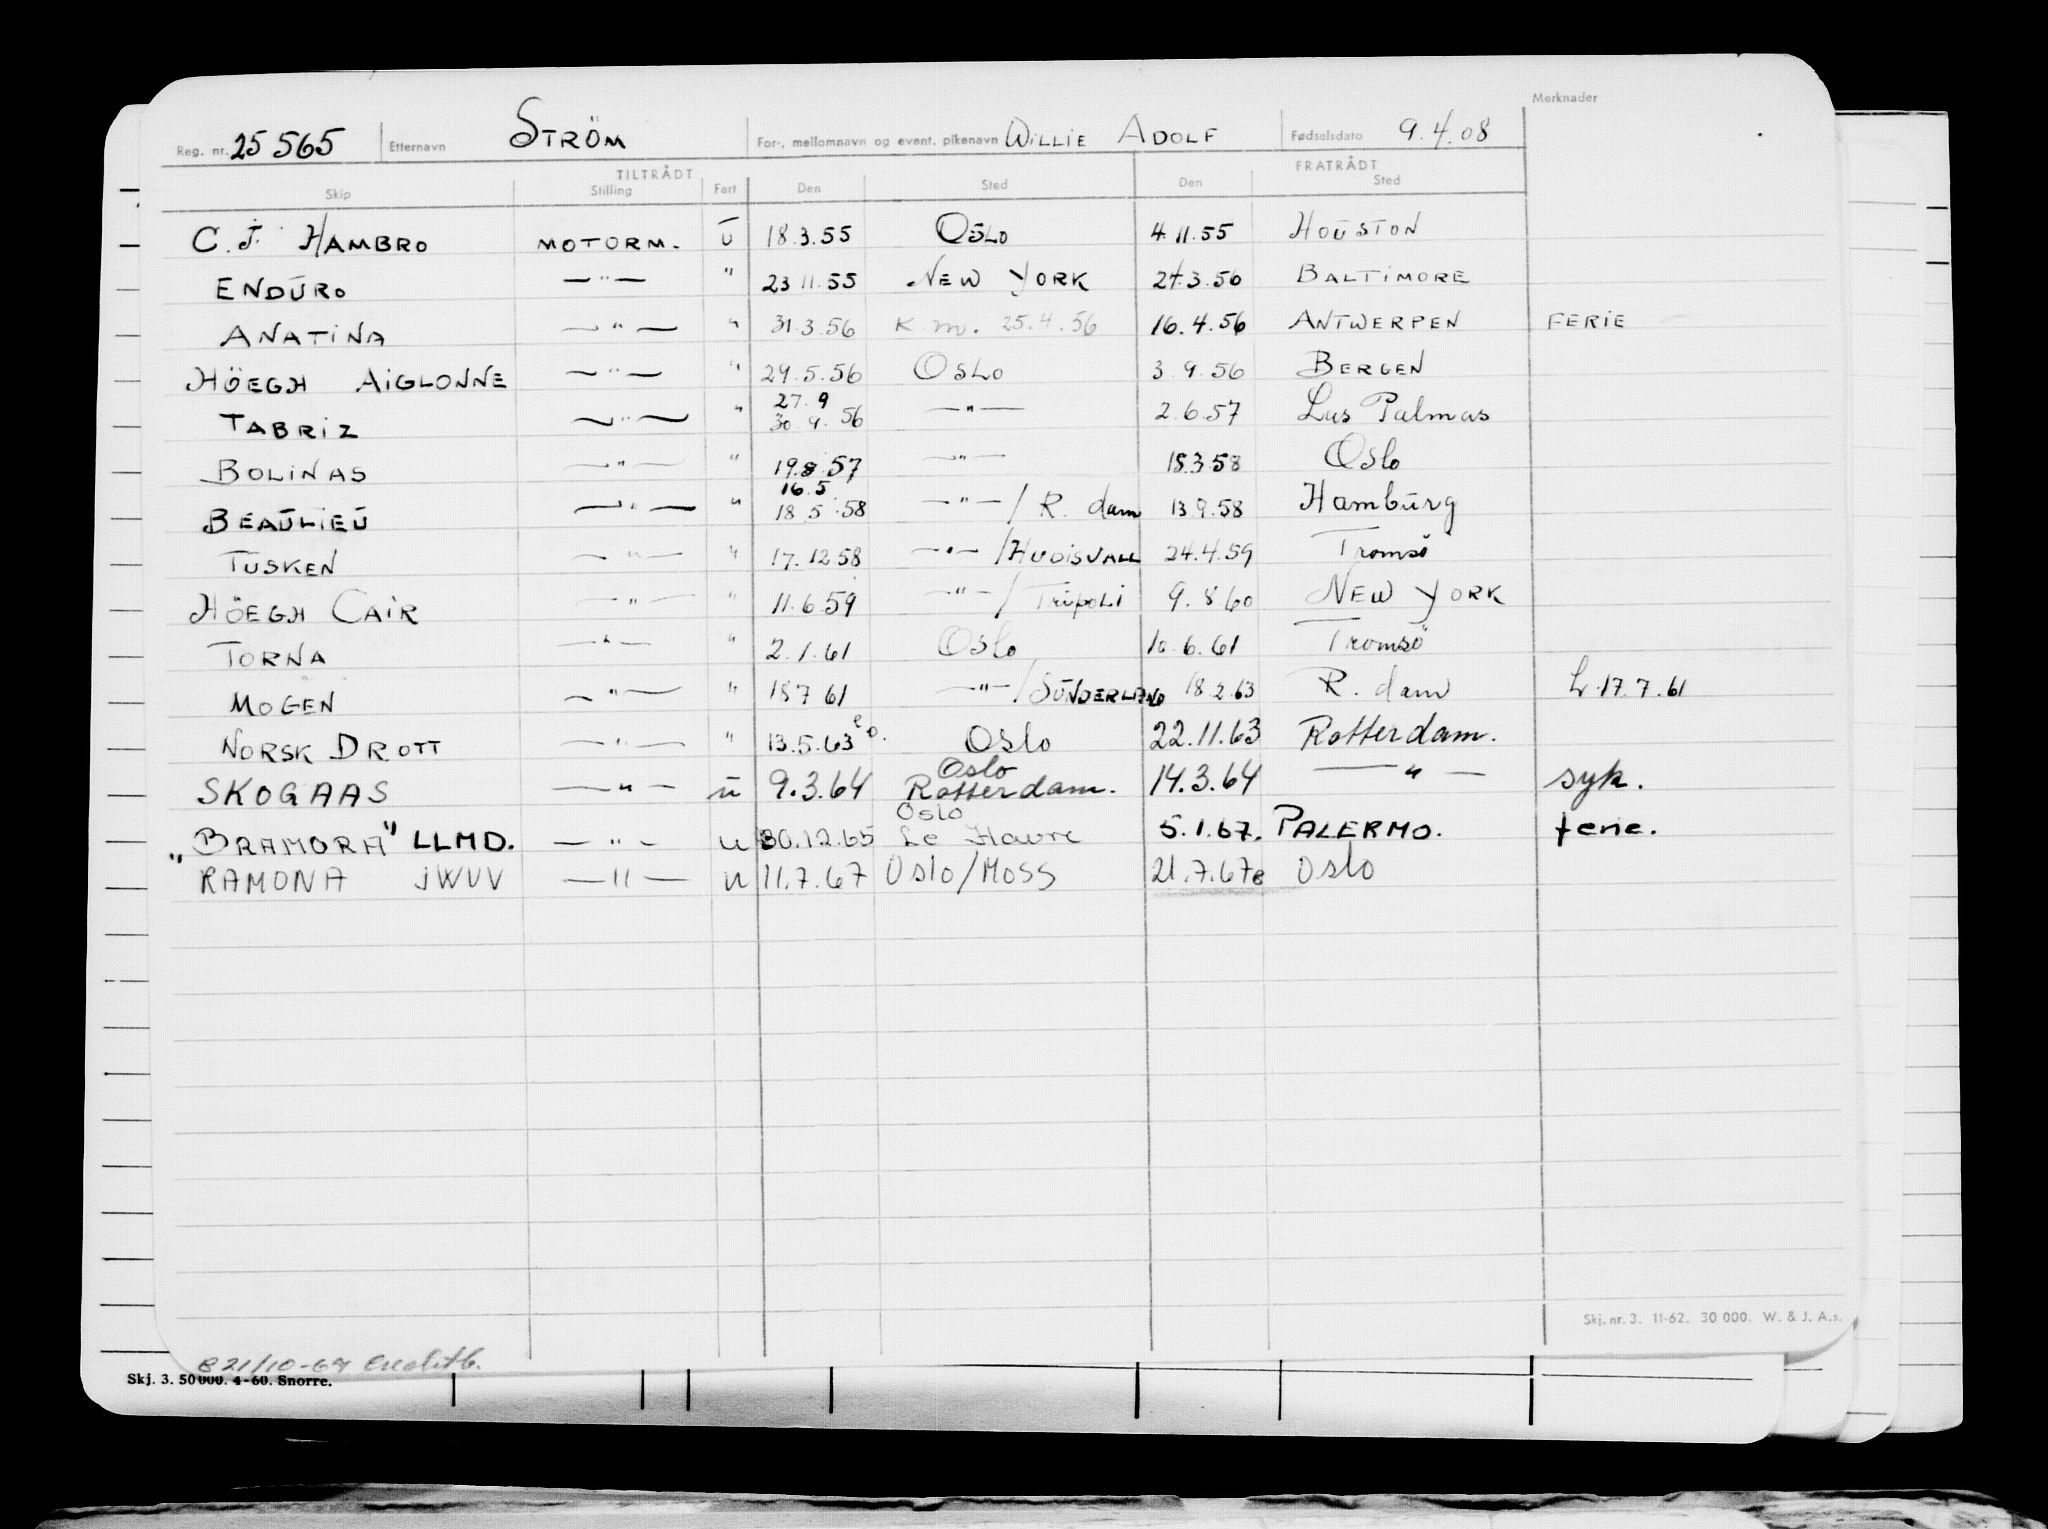 Merknader
Reg. nr. 25 565 Etternavn STRÖM For-, mellomnavn og event. pikenavn WILLIE ADOLF Fødselsdato 9.4.08
TILTRÅDT FRATRÅDT
Skip Stilling Fart Den Sted Den Sted
C.J. HAMBRO MOTORM. U 18.3.55 OSLO 4.11.55 HOUSTON
ENDURO —"— " 23 11.55 NEW YORK 24.3.56 BALTIMORE
ANATINA —"— " 31.3.56 K.m. 25.4.56 16.4.56 ANTWERPEN FERIE
HÖEGH AIGLONNE —"— " 29.5.56 OSLO 3.9.56 BERGEN
27.9
TABRIZ —"— " 30 9. 56 —"— 2.6.57 Las Palmas
BOLINAS —"— " 19.8.57 —"— 18.3.58 Oslo
16.5
BEAULIEU —"— " 18 5.58 —"—/R. dam 13.9.58 Hamburg
TUSKEN —"— " 17.12 58 —"—/HUDISVALL 24.4.59 Tromsö
HÖEGH CAIR —"— " 11.6.59 —"—/TRIPOLI 9.8.60 NEW YORK
TORNA —"— " 2.1.61 Oslo 10.6.61 Tromsö
MOGEN —"— " 18 7 61 —"—/SUNDERLAND 18.2.63 R. dam L.17.7.61
NORSK DROTT —"— " 13.5.63 Oslo 22.11.63 Rotterdam.
Oslo
SKOGAAS —"— u 9.3.64 Rotterdam. 14.3.64 —"— syk.
Oslo
"BRAMORA" LLMD. —"— u 30.12.65 Le Havre 5.1.67. PALERMO. ferie.
RAMONA JWUV —"— u 11.7.67 Oslo/Moss 21.7.67e Oslo
Skj. nr. 3. 11-62. 30 000. W. & J. A.s.
B 21/10-69
Skj. 3. 50 000. 4-60. Snorre.